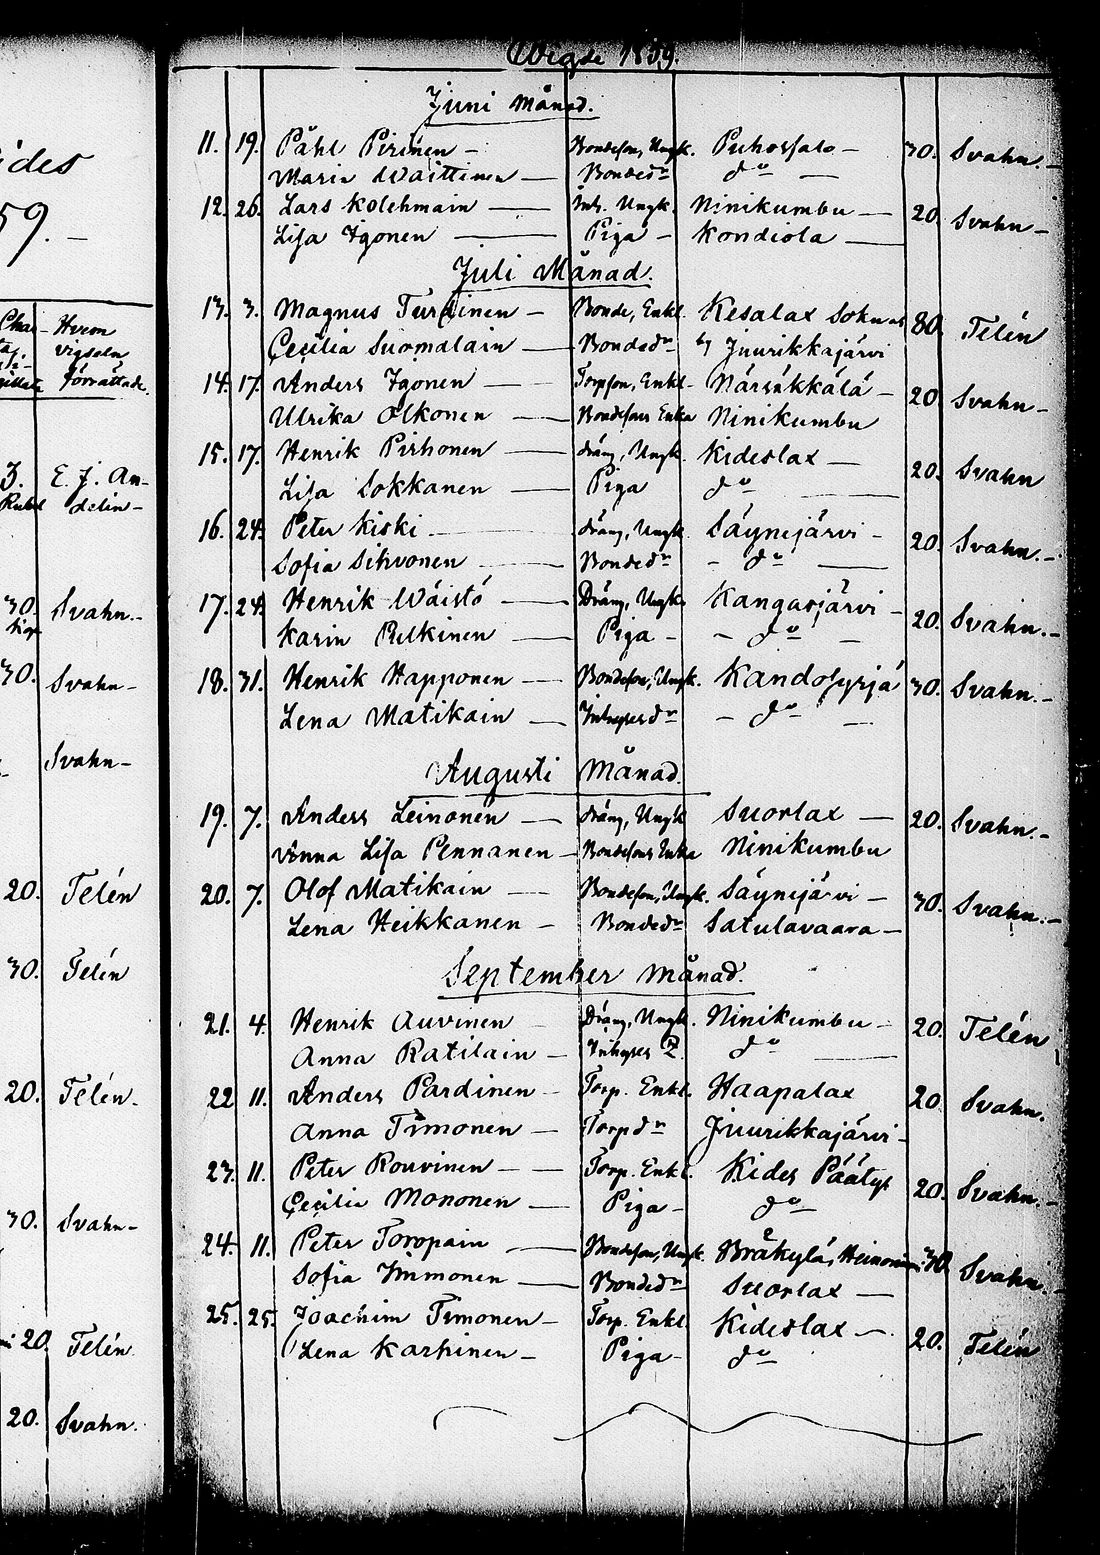 ides
59. -
Char- Hvem
vigseln
förrättade.
3. E. J. An-
Rubel delin-
30. Svahn.-
Kop
30. Svahn-
Svahn-
20. Telén
30. Telén
20. Telén.
30. Svahn-
20. Telén
20. Svahn.
Wigde 1859.
Juni Månad.
11. 19. Påhl Pirinen - Bondeson, Ungk. Puhossalo - 30. Svahn.-
Maria Waittinen - Bonded:r do -
12. 26. Lars Kolehmain - Inh. Ungk. Ninikumbu - 20. Svahn-
Lisa Igonen - Piga - Kondiola -
Juli Månad.
13. 3. Magnus Turkinen - Bonde, Enkl. Kesalax Sokn 80. Telén
Cecilia Suomalain - Bonded:r Juurikkajärvi
14. 17. Anders Igonen - Torpson, Enkl- Närsäkkälä - 20. Svahn-
Ulrika Olkonen - Bondesons Enka Ninikumbu
15. 17. Henrik Pirhonen - dräng, Ungk. Kideslax - 20. Svahn
Lisa Sokkanen - Piga do -
16. 24. Peter Kiski - dräng, Ungk. Säynejärvi - 20. Svahn.-
Sofia Sihvonen - Bonded:r - do -
17. 24. Henrik Wäistö - Dräng, Ungk. Kangasjärvi - 20. Svahn.-
Karin Pelkinen - Piga - - do -
18. 31. Henrik Happonen - Bondeson, Ungk. Kandosyrjä 30. Svahn.-
Lena Matikain - Inhyses d:r - do -
Augusti Månad.
19. 7. Anders Leinonen - dräng, Ungk Suorlax - 20. Svahn.-
Anna Lisa Pennanen - Bondesons Enka Ninikumbu
20. 7. Olof Matikain - Bondeson, Ungk. Säynejärvi - 30. Svahn.-
Lena Heikkanen - Bonded:r Satulavaara -
September månad.
21. 4. Henrik Auvinen - Dräng, Ungk. Ninikumbu - 20. Telén
Anna Ratilain - Inhyses do -
22 11. Anders Pardinen - Torp. Enkl. Haapalax 20. Svahn.
Anna Timonen - Torpd:r Juurikkajärvi -
23. 11. Peter Rouvinen - - Torp. Enkl. Kides Päätys 20. Svahn.-
Cecilia Mononen - Piga - do
24. 11. Peter Toropain - Bondeson, Ungk. Bråkylä, 30. Svahn.
Sofia Immonen - Bonded:r Suorlax -
25. 25. Joachim Timonen - Torp. Enkl. Kideslax - 20. Telén
Lena Karhinen - Piga - do